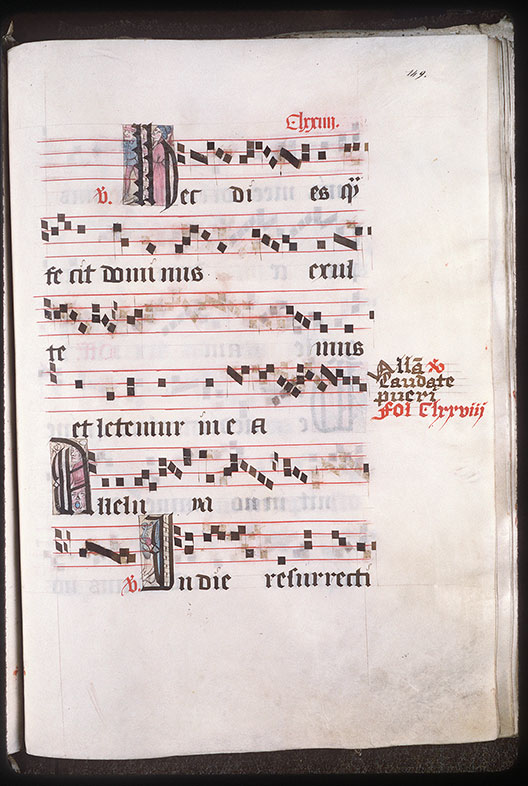 149.
Clxxiiii.
v. Hec di es q̄
fe cit domi nus exul
te mus
et letemur in e a
Allelu ya
v. In die resurrecti
All̄a v
Laudate
pueri
fol Clxxviij